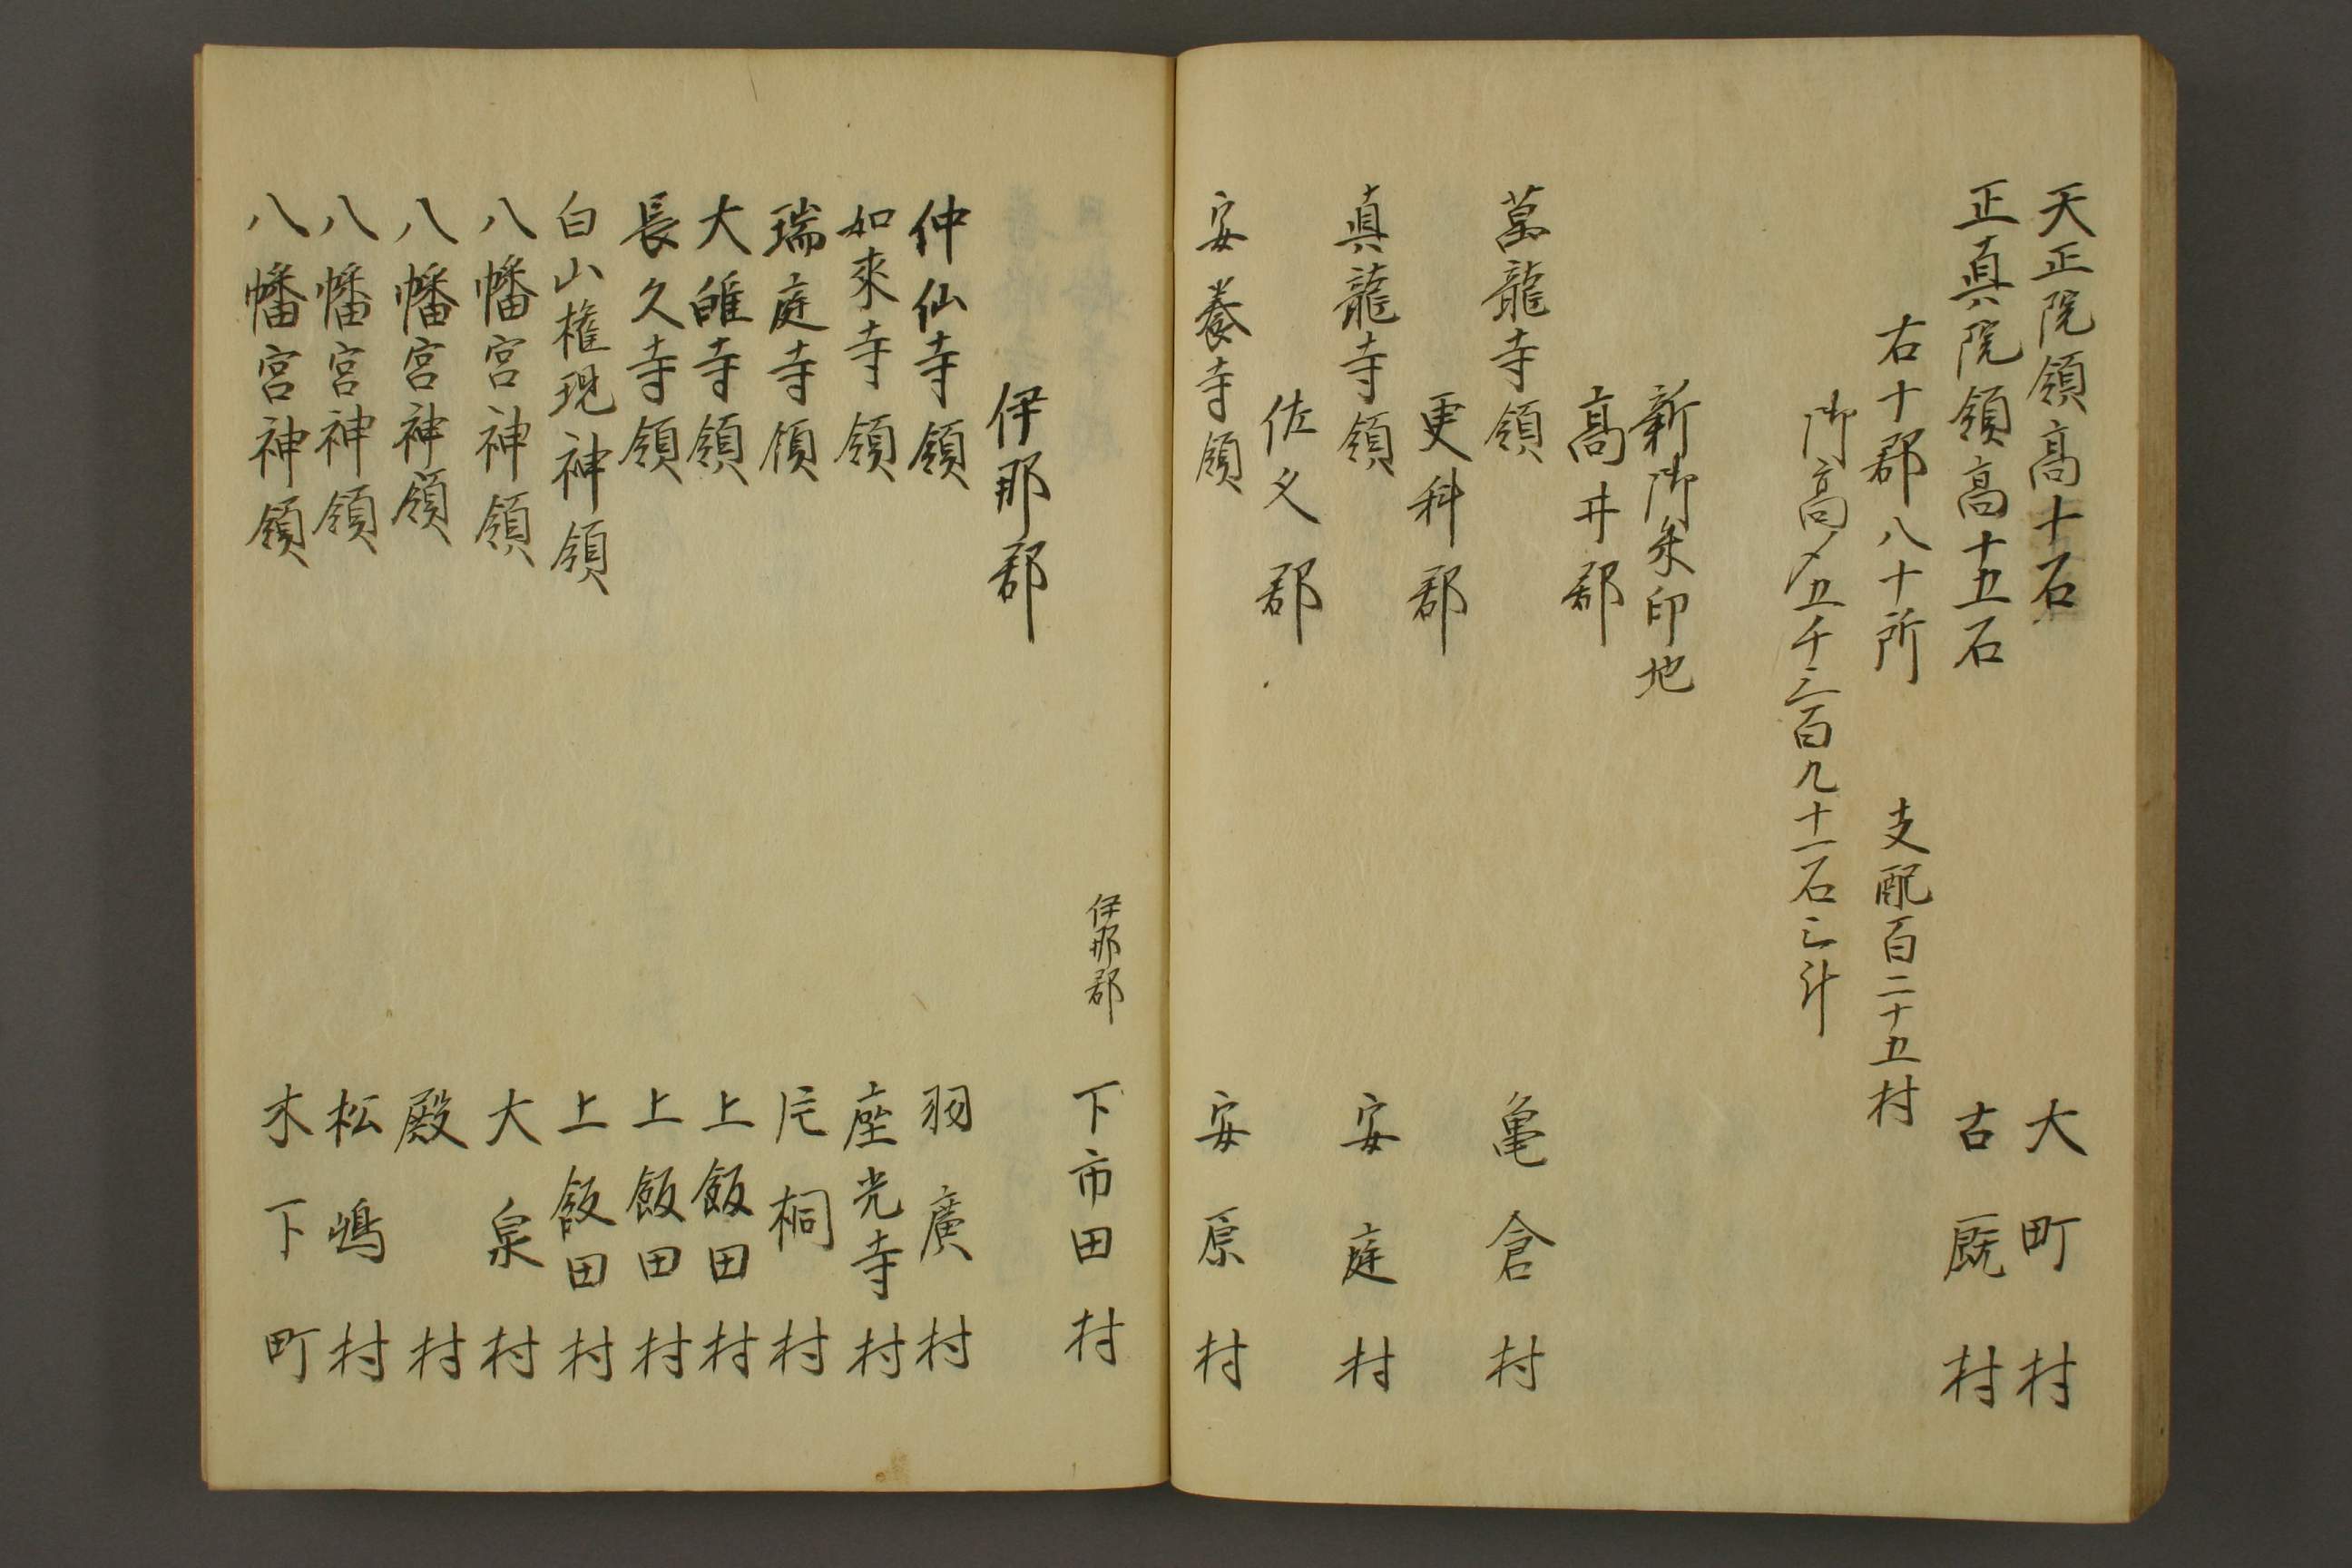 天正院領高十石 大町村
正真院領高十五石 古厩村
右十郡八十所 支配百二十五村
御高〆五千三百九十一石三斗
新御朱印地
高井郡
萬龍寺領 亀倉村
更科郡
真龍寺領 安庭村
佐久郡
安養寺領 安原村
伊那郡 下市田村
伊那郡
仲仙寺領 羽廣村
如來寺領 座光寺村
瑞庭寺領 片桐村
大雄寺領 上飯田村
長久寺領 上飯田村
白山権現神領 上飯田村
八幡宮神領 大泉村
八幡宮神領 殿村
八幡宮神領 松嶋村
八幡宮神領 木下町